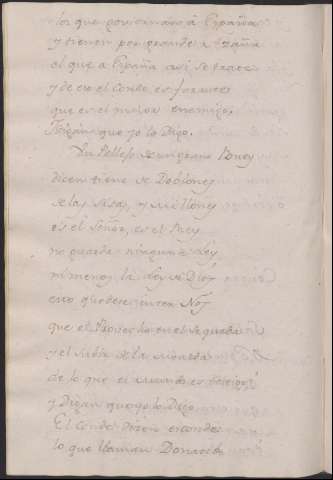 los que gouiernan a España
y tienen por grande azaña
el que a España asi se trate
y de ero el Conde es
que es el maior enemigo.
Digan que yo lo Digo.
Un Pellejo de un gran Buey
dicen tiene de Doblones
de las Sisas, y Millones
es el Señor, es el Rey
no guarda ninguna Ley
ni menos la Ley de Dios
eso que dese entre Nos
que el Prouecho en el se queda
y el Sabia de la moneda
de lo que el mundo es testigo,
y Digan que yo lo Digo
El Conde dicen esconde
lo que llaman Donatibo